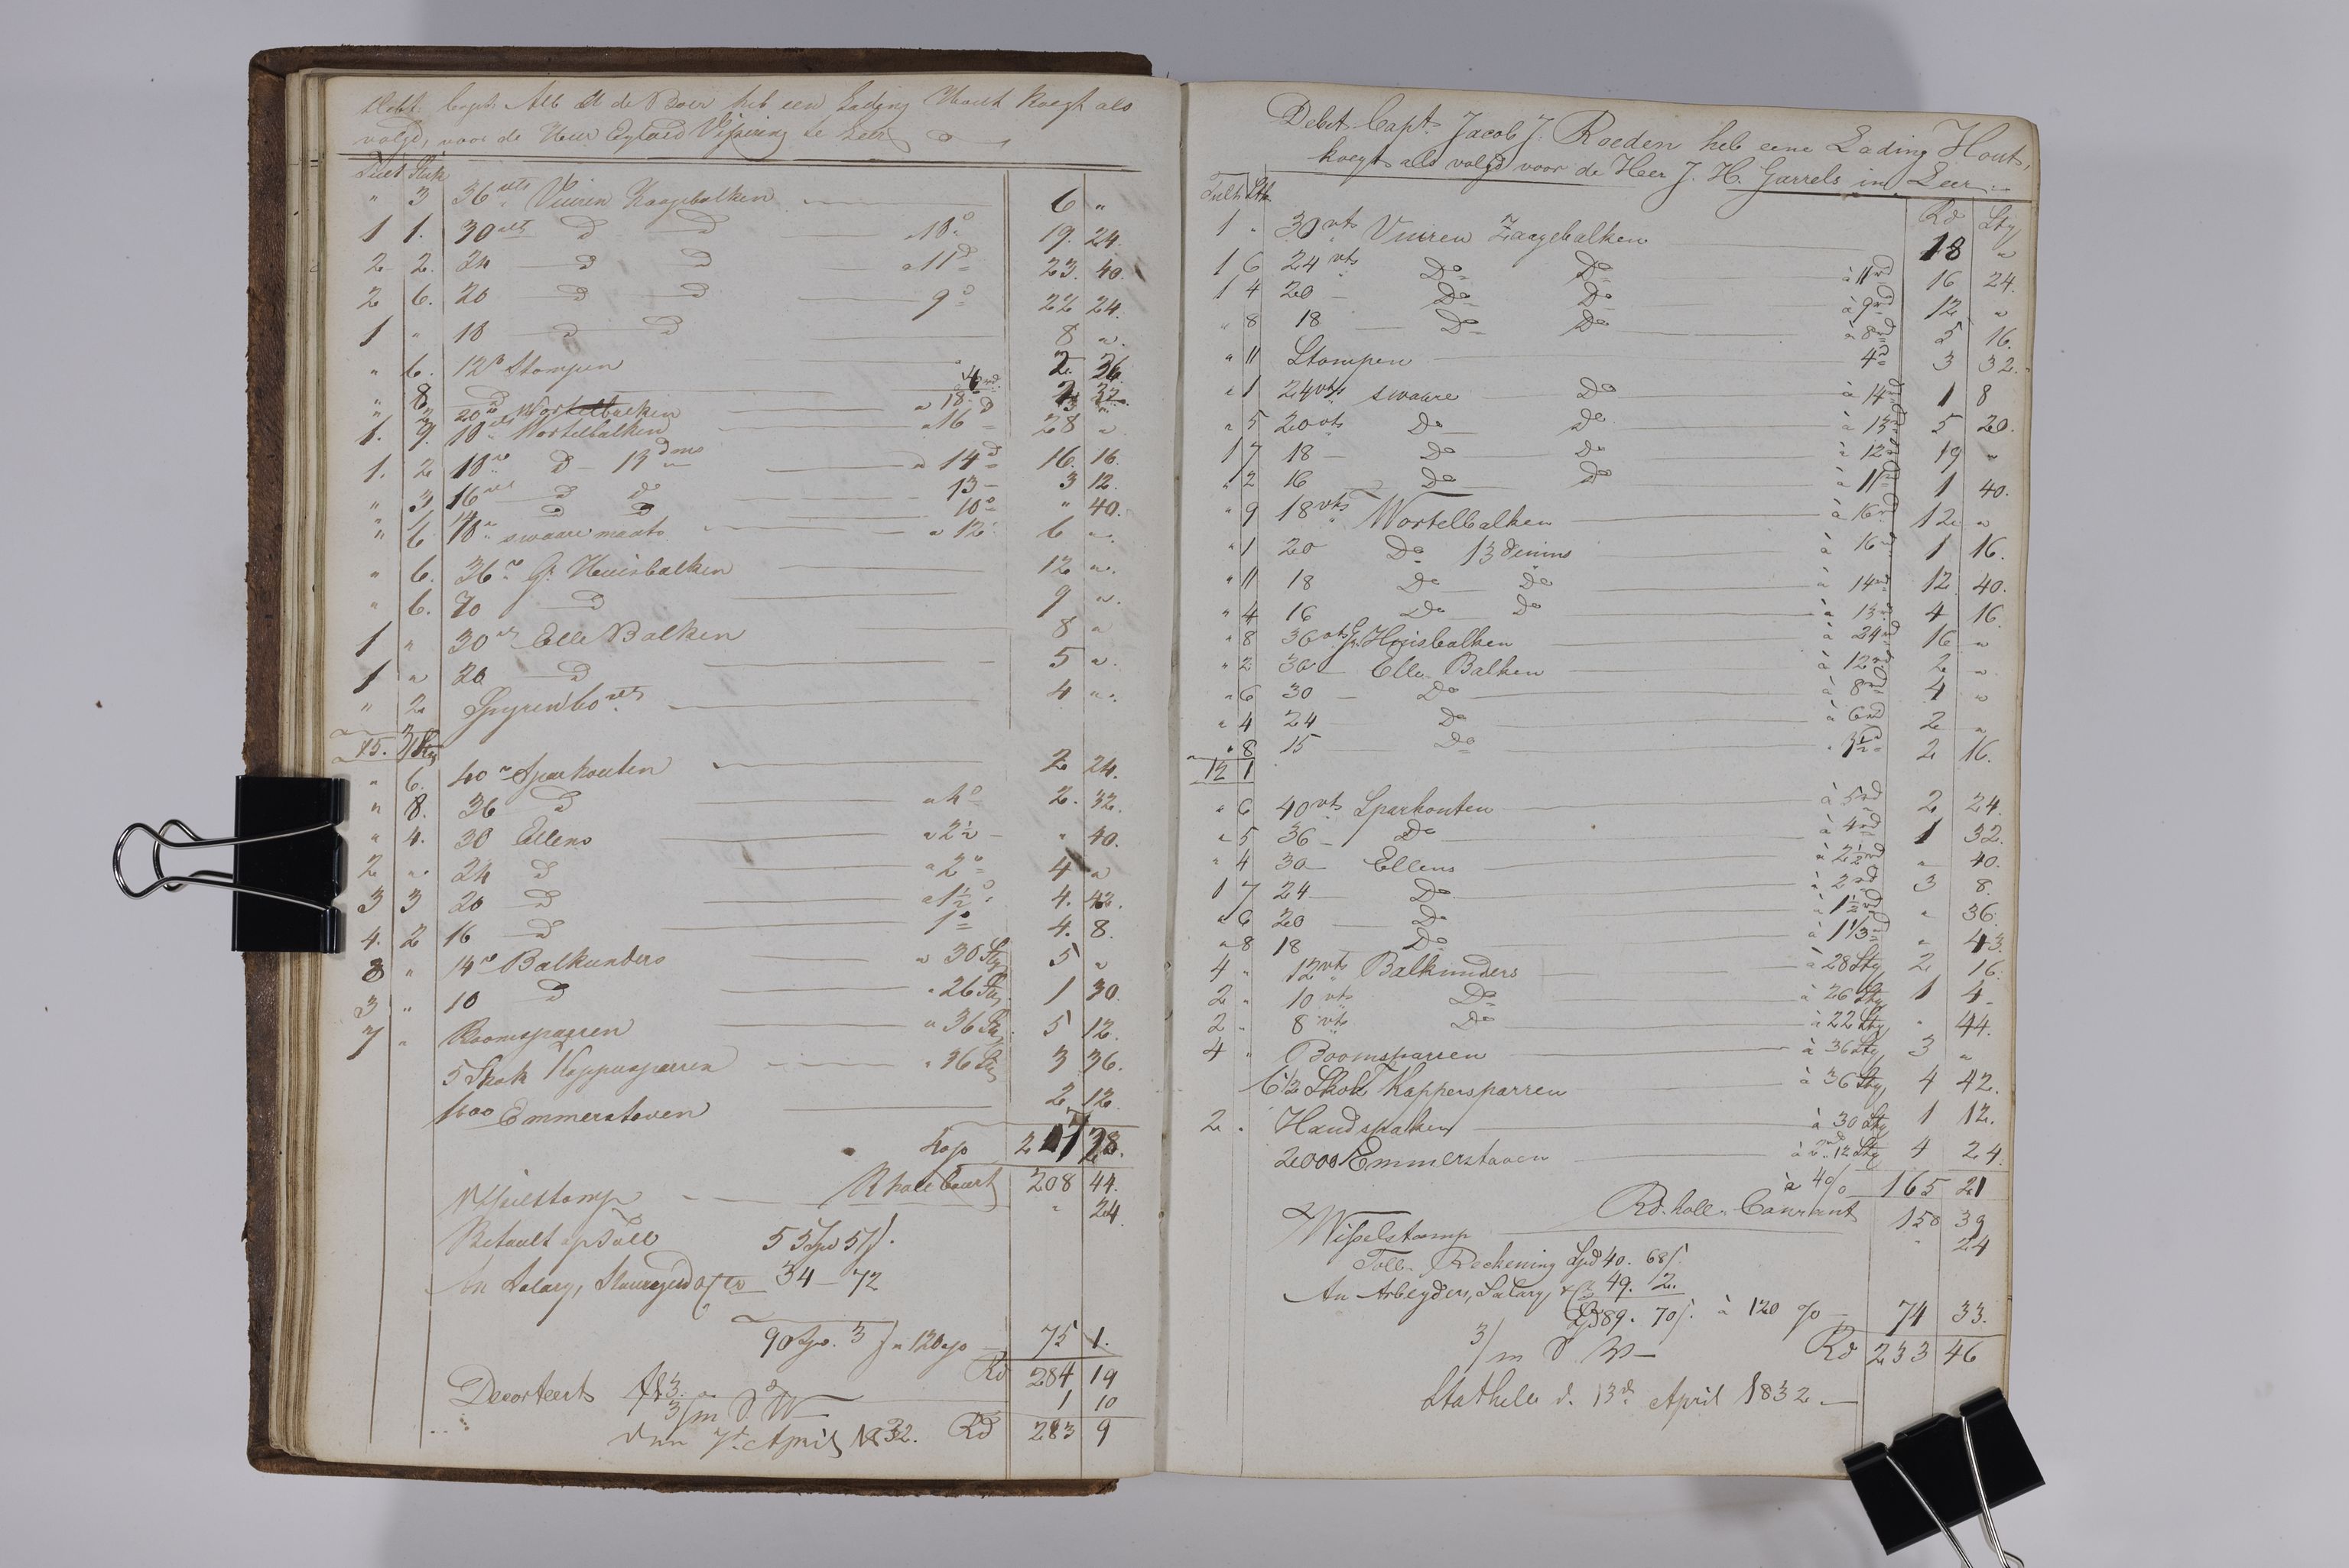 Debt. Capt. Alb. M de Boer heb een Lading Hout Koogt als
volgd, voor de Heer Vissering te Leer
Tult Stuk
" 3 36 vts Vuiren Zaagebalken 6 "
1 1. 30 vts d d a 18 d 19. 24.
2 2. 24 d d a 11 d 23. 40.
2 6. 20 d d 9 d 22 24.
1 " 18 d d 8 ".
" 6. 12 Stompen 2. 36
" 8 d 4 rd. 2 32
" 2 20 Wortelbalken a 18 d 3 "
1. 9. 18 vts Wortelbalken a 16 28 "
1. 2 18 d 13 dms a 14 d 16. 16.
" 3 16 vts d do 13 3 12.
" 1 14 d d 10 d " 40.
" 6 18 swaare maats a 12 6 ".
" 6. 36 Gr. Huisbalken 12 ".
" 6. 30 d 9 ".
1 " 30 Elle Balken 8 "
1 " 20 d 5 ".
" 2 Spyren 60 vts 4 ".
15. 3 Stu
" 6. 40 Sparhouten 2 24.
" 8. 36 d a 4 d 2. 32.
" 4. 30 Ellens a 2½ " 40.
2 ". 24 d a 2 d 4 "
3 3 20 d a 1½ d 4. 42.
4. 2 16 d 1 d 4. 8.
8 " 14 Balkunders a 30 Sty 5 "
3 " 10 d a 26 Sty 1 30.
7 " Boomsparren a 36 Sty 5 12.
5 Skok Kappersparren a 36 Sty 3 36.
1000 Emmerstaven 2 12.
4 o/o 217 28.
Rd holl Courant 208 44.
Wisselstomp " 24.
Betault op Toll 55 Spd 51 ſ.
An Salary, 34 — 72
90 Spd. 3 ſ a 120 o/o 75 1.
Rd 284 19
Decorteert 1 10
3/m d. W
den 7d. April 1832. Rd 283 9
Debet Capt. Jacob J. Roeden heb eene Lading Hout,
koegt als volgd voor de Heer J. H. Garrels in Leer
Tult Stk
Rd Sty
1 " 30 vts Vuiren Zaagebalken 18 "
1 6 24 vts Do Do à 11 rd 16 24.
1 4 20 — Do Do à 9 rd 12 "
" 8 18 — Do Do à 8 rd 5 16.
" 11 Stompen 4 rd 3 32.
" 1 24 vts swaare Do à 14 rd 1 8
" 5 20 vts Do Do à 13 rd 5 20.
1 7 18 — Do Do à 12 rd 19 "
" 2 16 — Do Do à 11 rd 1 40.
" 9 18 vts Wortelbalken à 16 rd 12 "
" 1 20 Do 13 duims à 16 rd 1 16.
" 11 18 Do Do à 14 rd 12 40.
" 4 16 Do Do à 13 rd 4 16.
" 8 36 vts Gr. Huisbalken à 24 rd 16 "
" 2 36 — Elle Balken à 12 rd 2 "
" 6 30 — Do à 8 rd 4 "
" 4 24 — Do à 6 rd 2 "
" 8 15 — Do 3½ 2 16.
12 1
" 6 40 vts Sparhouten à 5 rd 2 24.
" 5 36 — Do à 4 rd 1 32.
" 4 30 — Ellens à 2½ rd " 40.
1 7 24 — Do à 2 rd 3 8.
" 6 20 — Do à 1½ rd " 36.
" 8 18 — Do à 1 1/3 " 43.
4 " 12 vts Balkunders à 28 Sty 2 16.
2 " 10 vts Do à 26 Sty 1 4
2 " 8 vts Do à 22 Sty " 44.
4 " Boomsparren à 36 Sty 3 "
6½ Skok Kappersparren à 36 Sty 4 42.
2 . Handspaken à 30 Sty 1 12.
2000 Emmerstaven à 2 rd 12 Sty 4 24.
à 4 % 165 21
Rd. holl. Courant 158 39
Wisselstomp " 24
Toll-Reckening Spd 40. 68 ſ.
An Arbeyders, Salary, 49. 2.
Spd 89. 70 ſ. à 120 % 74 33.
3/m d W — Rd 233 46
Stathelle d. 13d. April 1832. —